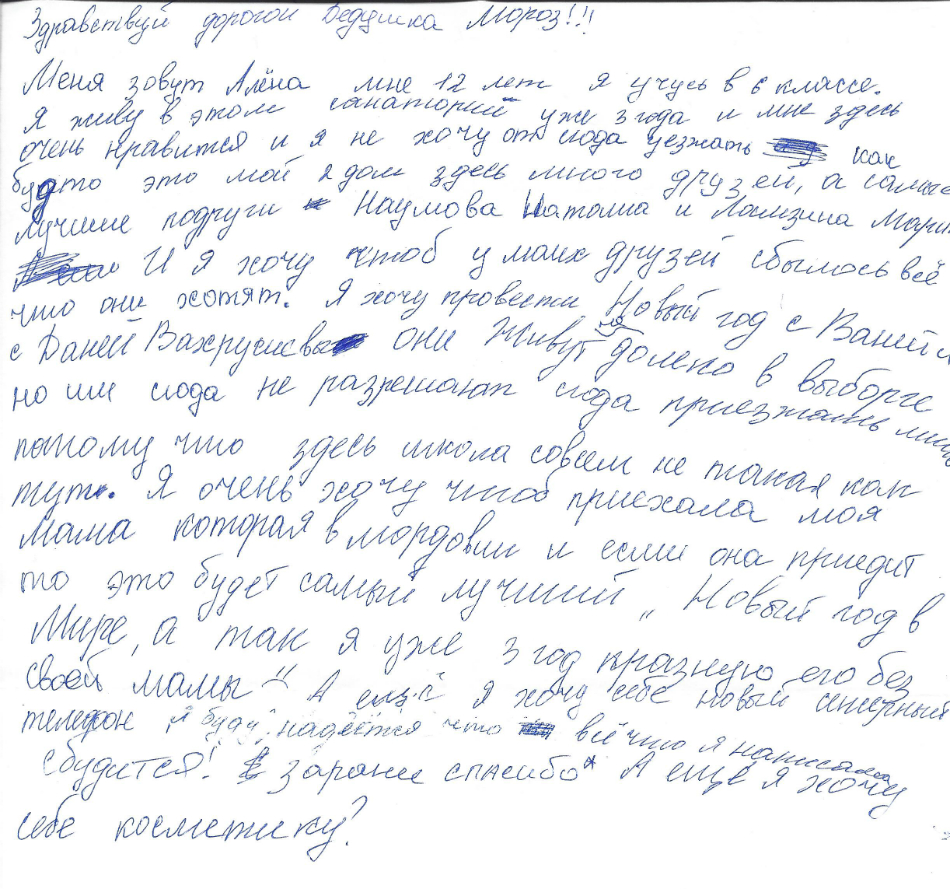 Здравствуй дорогой Дедушка Мороз!!!
Меня зовут Алёна мне 12 лет я учусь в 6 классе.
Я живу в этом санаторий уже 3 года и мне здесь
очень нравится и я не хочу от сюда уезжать как
будто это мой 2 дом здесь много друзей, а самые
лучшие подруги Наумова Наташа и Ламзина Мари
И я хочу чтоб у моих друзей сбылось всё
что они хотят. Я хочу провести Новый год с Ваней и
с Даней Вахрушевы они живут но далеко в выборге
но им сюда не разрешают сюда приезжать
потому что здесь школа совсем не такая как
тут. Я очень хочу чтоб приехала моя
мама которая в мордовии и если она приедит
то это будет самый лучший „Новый год в
Мире, а так я уже 3 год празную его без
своей мамы" А ещё я хочу себе новый сенсерный
телефон я буду надеется что всё что я написала
сбудится! зарание спасибо* А ещё я хочу
себе косметику?